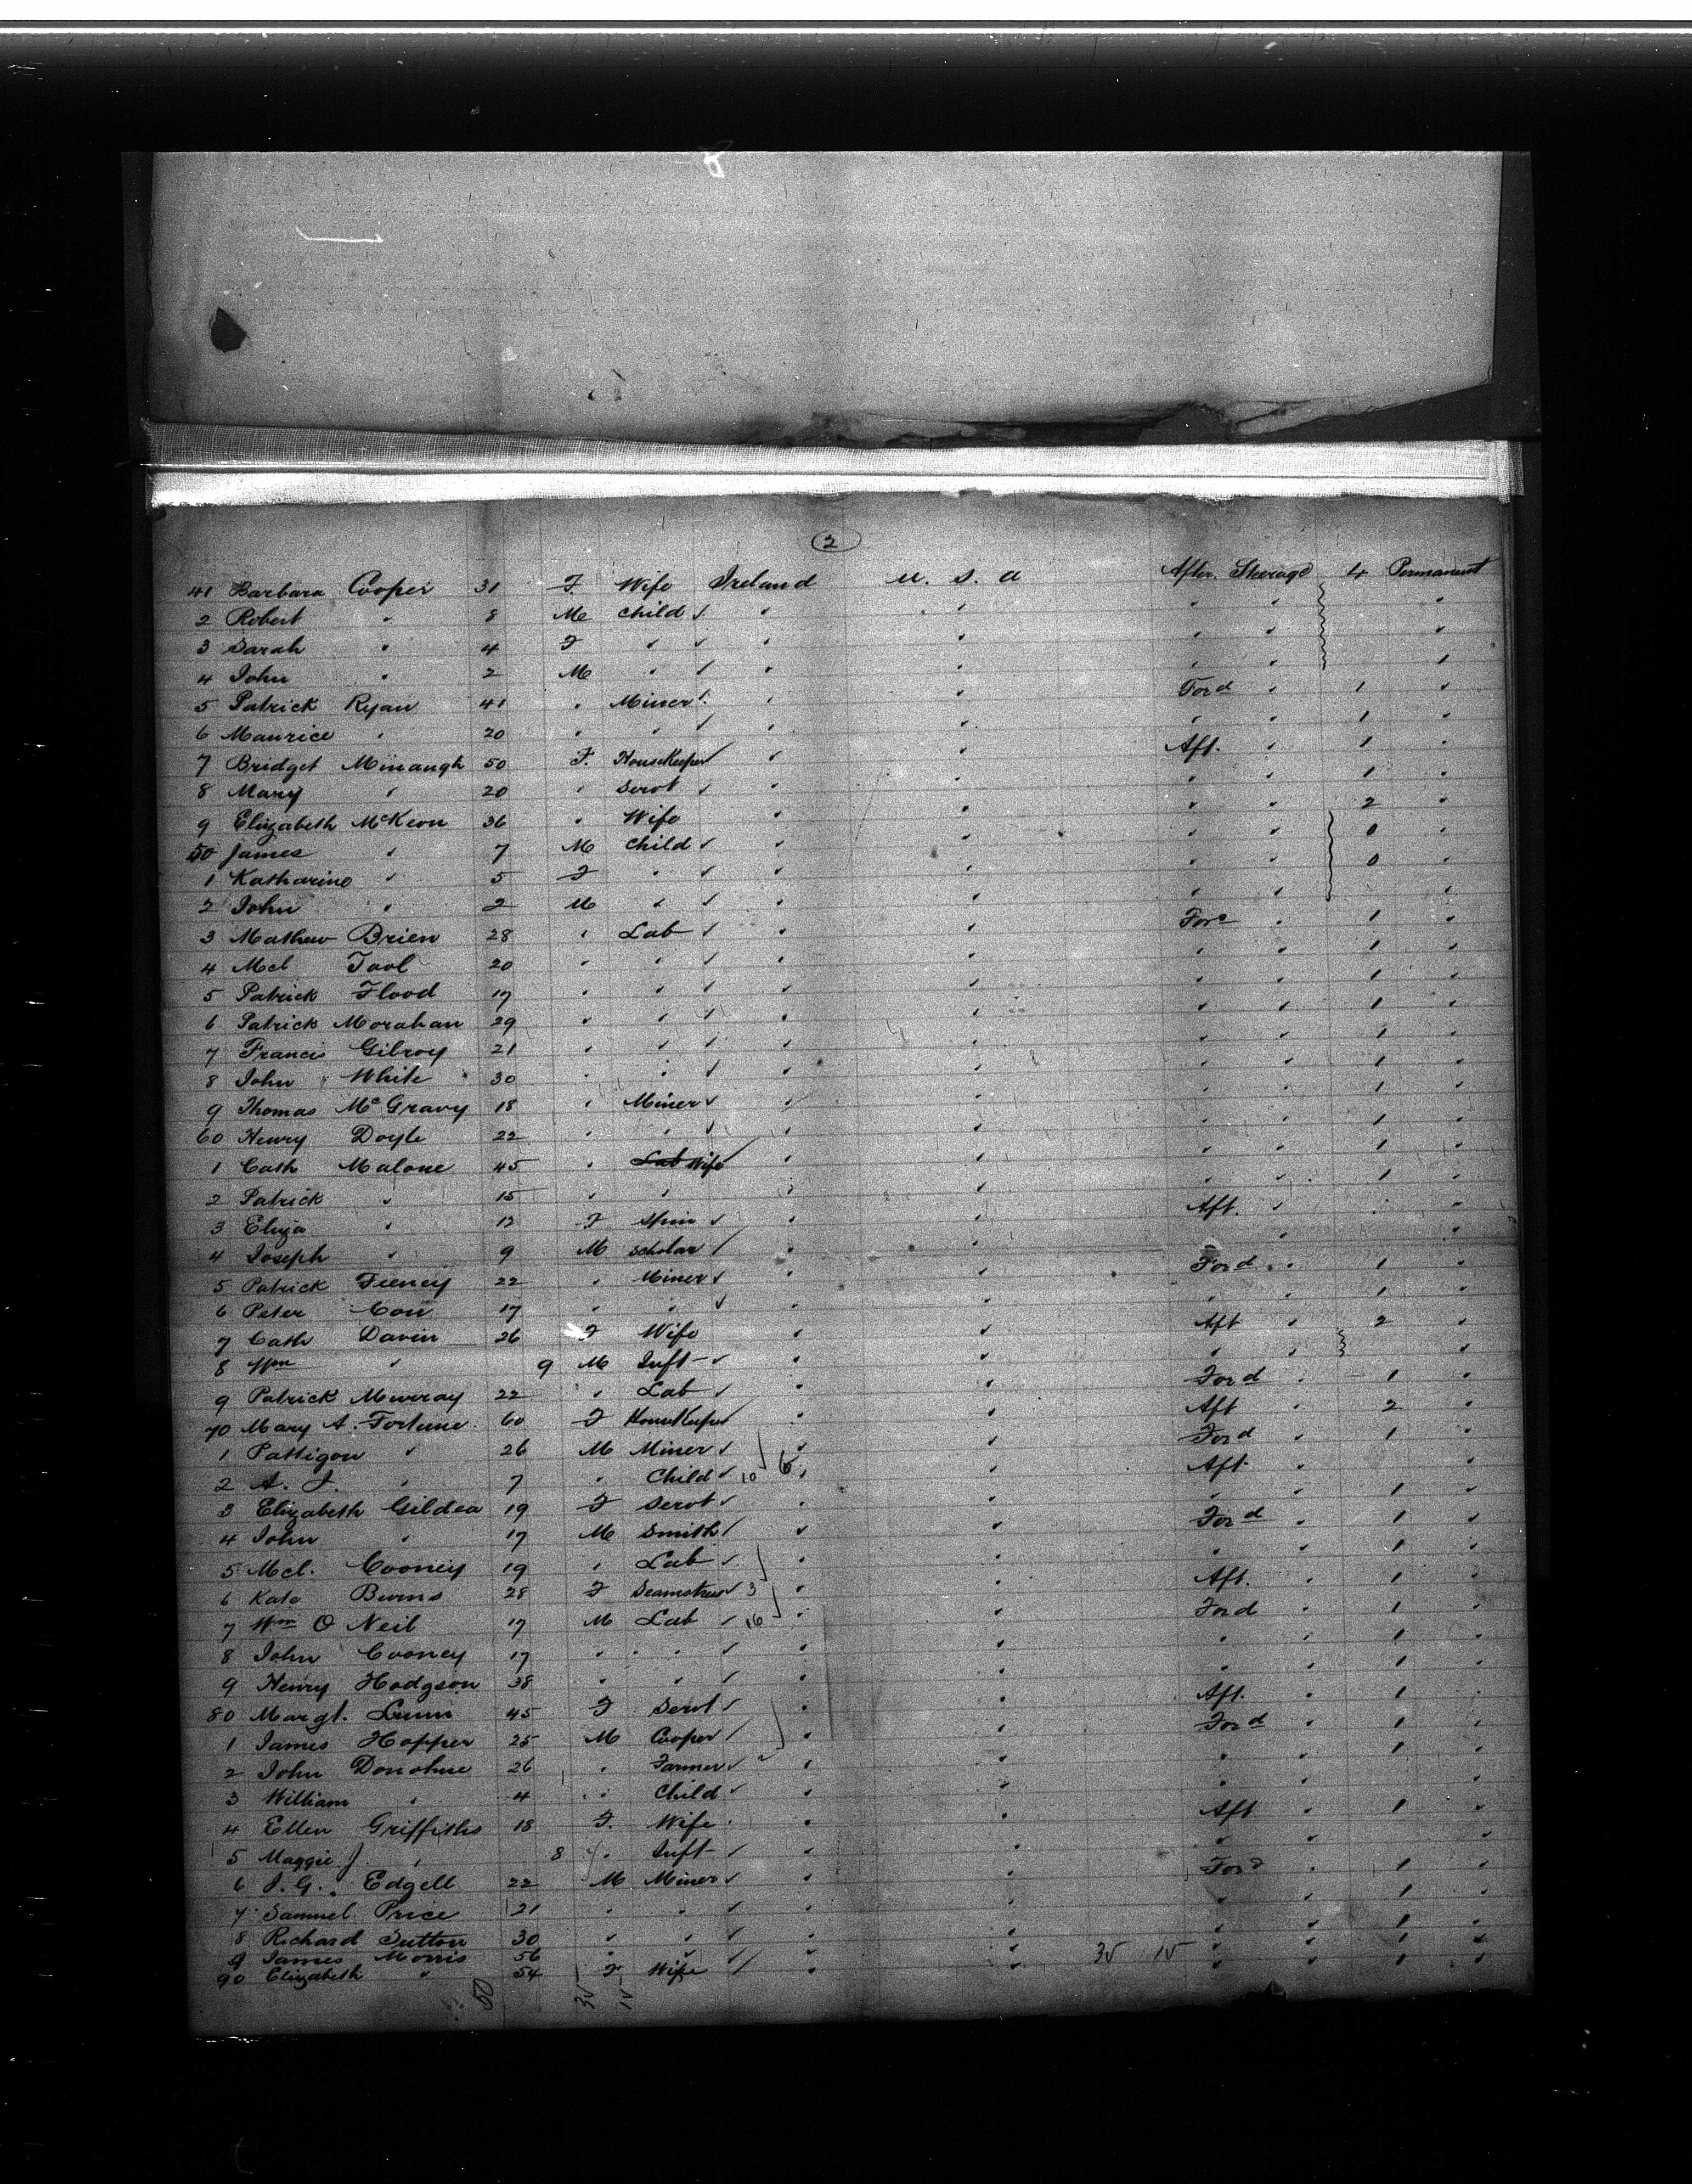 2
41 Barbara Cooper 31 F Wife Ireland U. S. A After. Steerage 4 Permanent
2 Robert " 8 M Child " " " " "
3 Sarah " 4 F " " " " " "
4 John " 2 M " " " " " "
5 Patrick Ryan 41 " Miner " " Ford " 1 "
6 Maurice " 20 " " " " " " 1 "
7 Bridget Minaugh 50 F. HouseKeeper " " Aft. " 1 "
8 Mary " 20 " Servt " " " " 1 "
9 Elizabeth McKeon 36 " Wife " " " " 2 "
50 James " 7 M Child " " " " 0 "
1 Katharine " 5 F " " " " " 0 "
2 John " 2 M " " " " " "
3 Mathew Brien 28 " Lab " " Ford " 1 "
4 Mcl 20 " " " " " " 1 "
5 Patrick Flood 17 " " " " " " 1 "
6 Patrick Morahan 29 " " " " " " 1 "
7 Francis Gilroy 21 " " " " " " 1 "
8 John White 30 " " " " " " 1 "
9 Thomas McGravy 18 " Miner " " " " 1 "
60 Henry Doyle 22 " " " " " " 1 "
1 Cath Malone 45 " Lab Wife " " " " 1 "
2 Patrick " 15 " " " " " " 1 "
3 Eliza " 12 F Spin " " Aft. " "
4 Joseph " 9 M Scholar " " " "
5 Patrick Feeney 22 " Miner " " Ford " 1 "
6 Peter 17 " " " " " " 1 "
7 Cath Davin 26 F Wife " " Aft " 2 "
8 Wm " 9 M Inft " " " " "
9 Patrick Murray 22 " Lab " " Ford " 1 "
70 Mary A. Fortune 60 F HouseKeeper " " Aft " 2 "
1 Pattigon " 26 M Miner " " Ford " 1 "
2 A. J. " 7 " Child 10 " " Aft. " "
3 Elizabeth Gildea 19 F Servt " " " " 1 "
4 John " 17 M Smith " " Ford " 1 "
5 Mcl. Cooney 19 " Lab " " " " 1 "
6 Kate Burns 28 F Seamstress 3 " " Aft. " 1 "
7 Wm O Neil 17 M Lab 16 " " Ford " 1 "
8 John Cooney 17 " " " " " " 1 "
9 Henry Hodgson 38 " " " " " " 1 "
80 Margt. Lunn 45 F Servt " " Aft. " 1 "
1 James Hopper 25 M Cooper " " Ford " 1 "
2 John Donohue 26 " Farmer " " " " 1 "
3 William " 4 " Child " " " "
4 Ellen Griffiths 18 F. Wife " " Aft " 1 "
5 Maggie J " 8 " Inft " " " " "
6 J. G. Edgell 22 M Miner " " Ford " 1 "
7 Samuel Price 21 " " " " " " 1 "
8 Richard Sutton 30 " " " " " " 1 "
9 James Morris 56 " " " " " " 1 "
90 Elizabeth " 54 F Wife " " " " 1 "